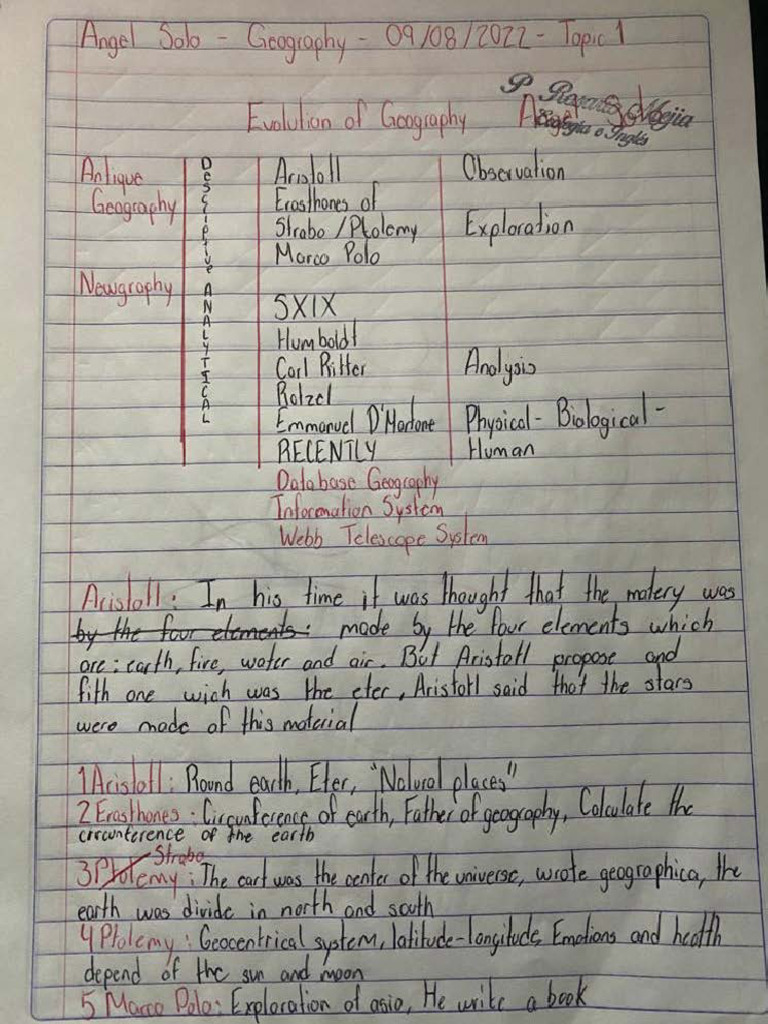 Angel Solo - Geography - 09/08/2022 - Topic 1
Evolution of Geography
P Rosario Mejia
Ecología e Inglés
Antique Geography
DESCRIPTIVE
Aristotl
Observation
Erasthones of
Strabo / Ptolemy
Exploration
Marco Polo
Newgraphy
ANALYTICAL
SXIX
Humboldt
Carl Ritter
Analysis
Ratzel
Emmanuel D'Martone
Physical - Biological -
RECENTLY
Human
Database Geography
Information System
Webb Telescope System
Aristotl: In his time it was thought that the matery was
by the four elements: made by the four elements which
are: earth, fire, water and air. But Aristotl propose and
fith one wich was the eter, Aristotl said that the stars
were made of this material
1 Aristotl: Round earth, Eter, "Natural places"
2 Erasthones: Circunference of earth, Father of geography, Calculate the
circunference of the earth
Strabo
3 Ptolemy: The eart was the center of the universe, wrote geographica, the
earth was divide in north and south
4 Ptolemy: Geocentrical system, latitude-longitude, Emotions and health
depend of the sun and moon
5 Marco Polo: Exploration of asia, He write a book